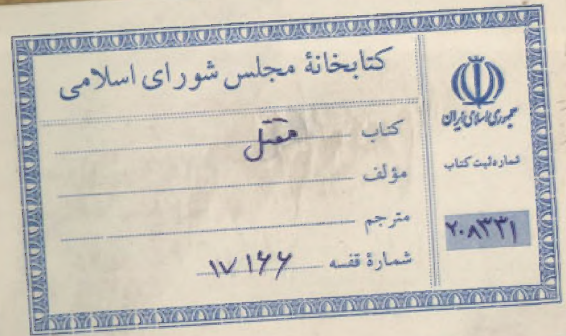 کتابخانهٔ مجلس شورای اسلامی
کتاب مقتل
مؤلف
مترجم
شمارهٔ قفسه ۱۷۱۶۶
جمهوری اسلامی ایران
شماره ثبت کتاب
۲۰۸۳۳۱